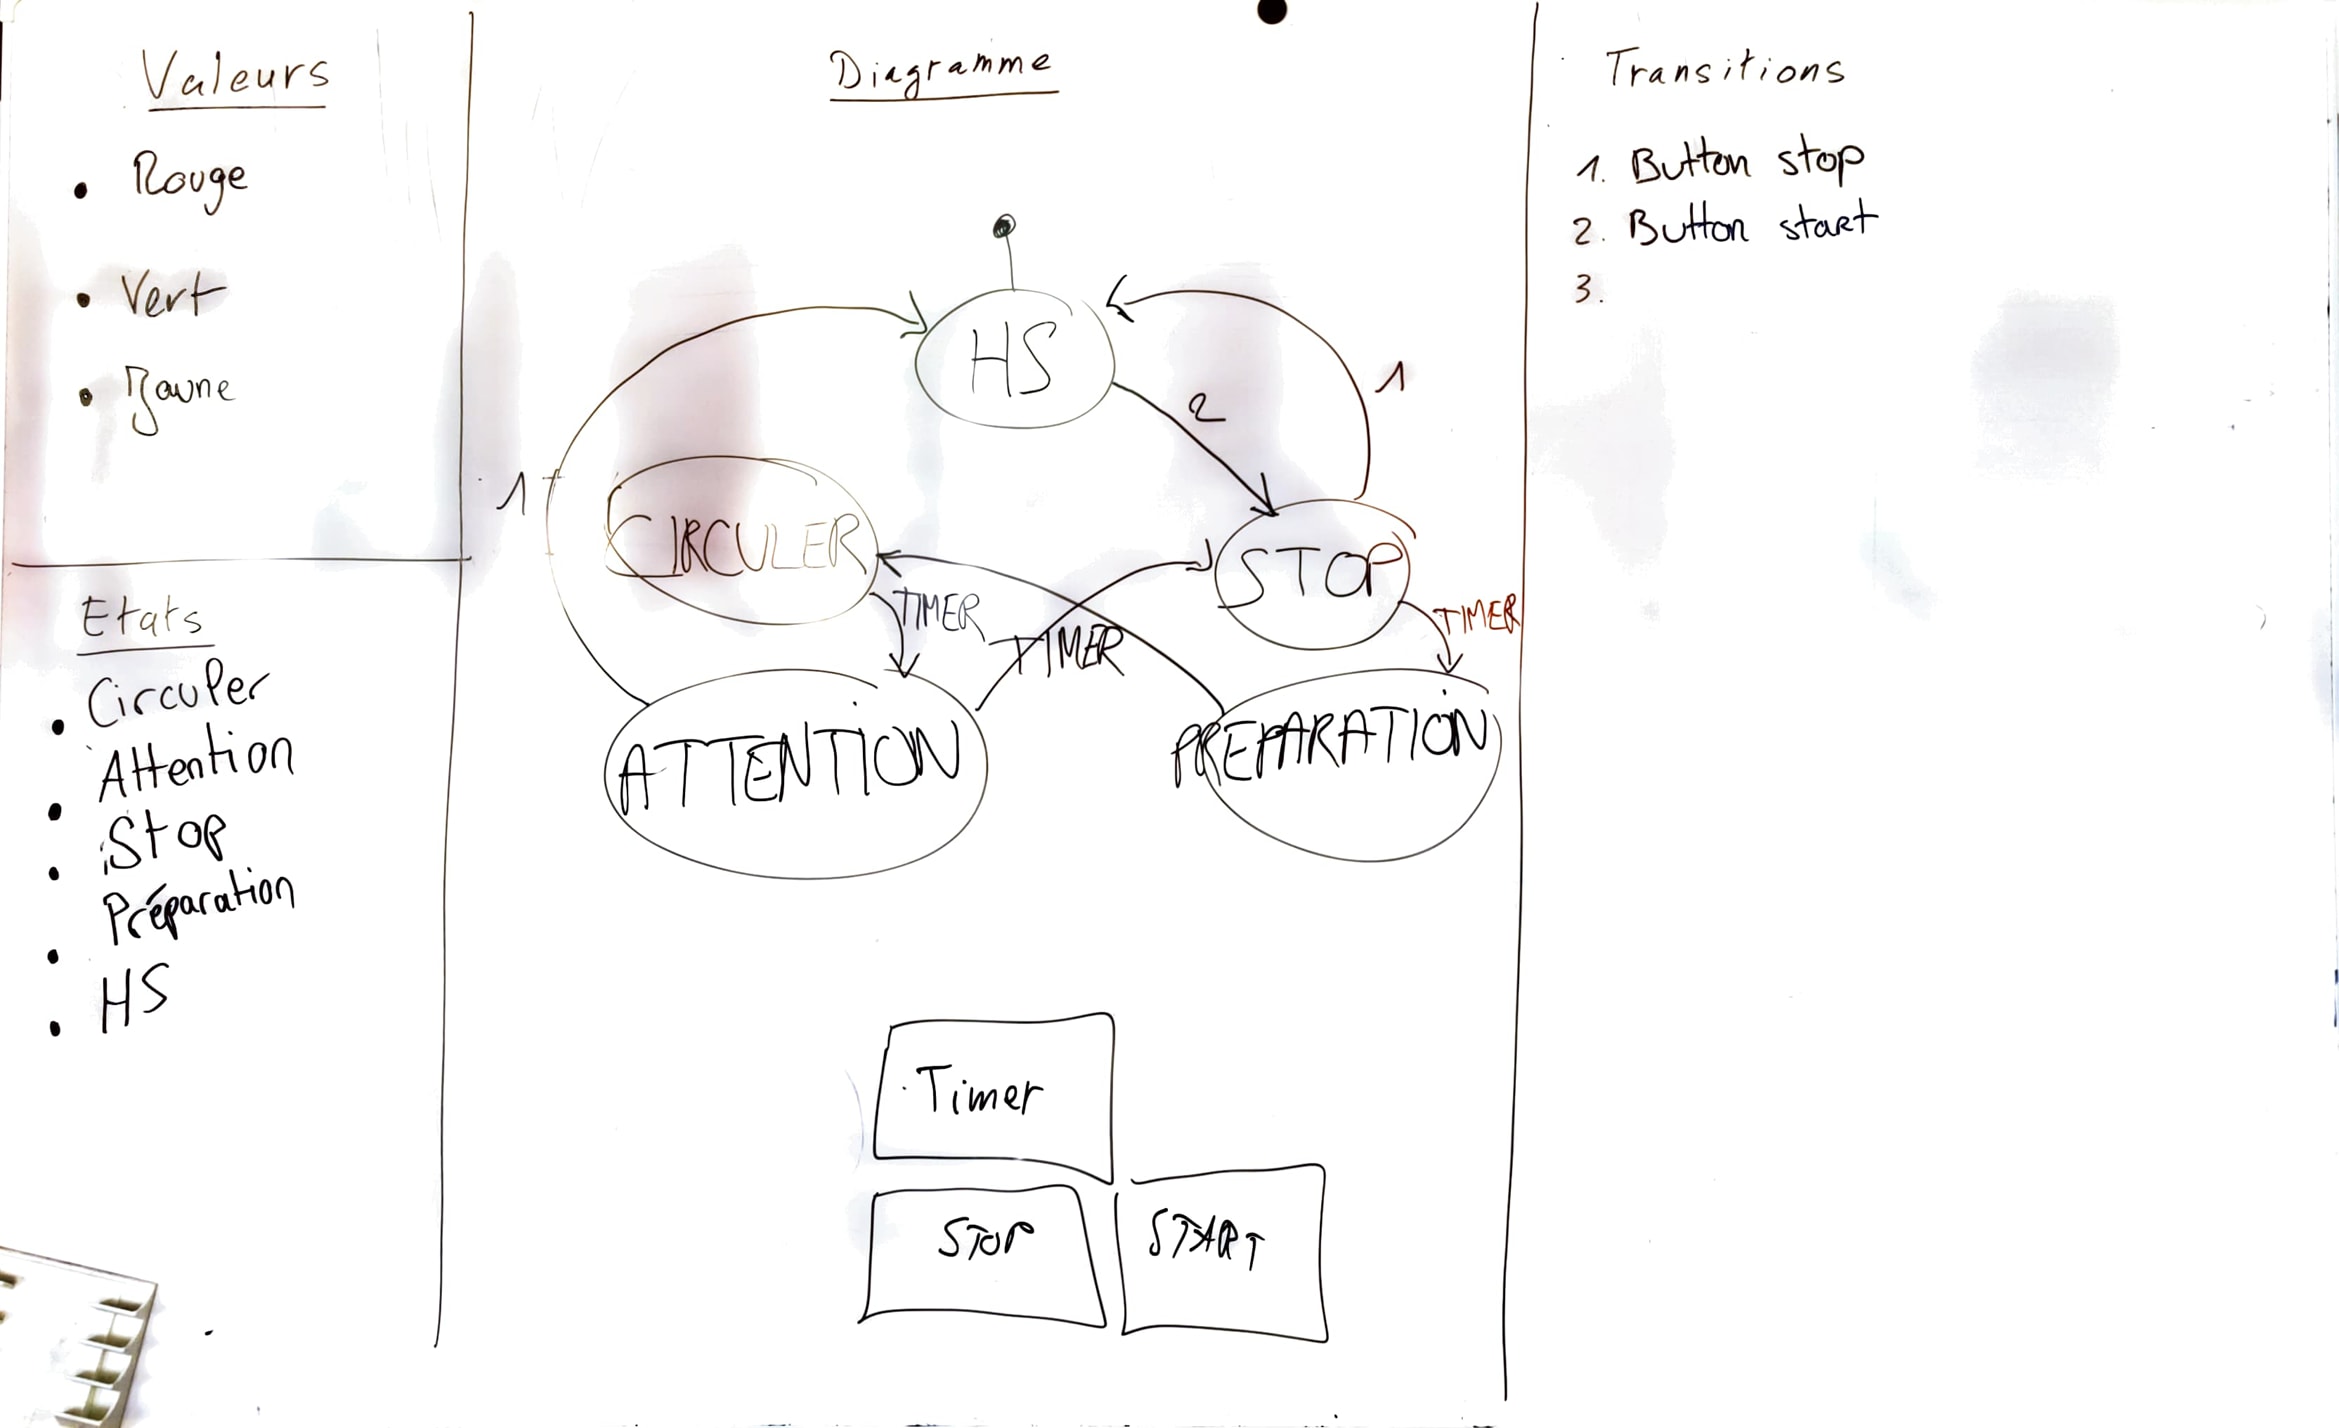 Valeurs
• Rouge
• Vert
• Jaune
Etats
• Circuler
• Attention
• Stop
• Préparation
• HS
Diagramme
HS
1
2
1
CIRCULER
STOP
TIMER
TIMER
TIMER
ATTENTION
PREPARATION
Timer
STOP
START
Transitions
1. Button stop
2. Button start
3.